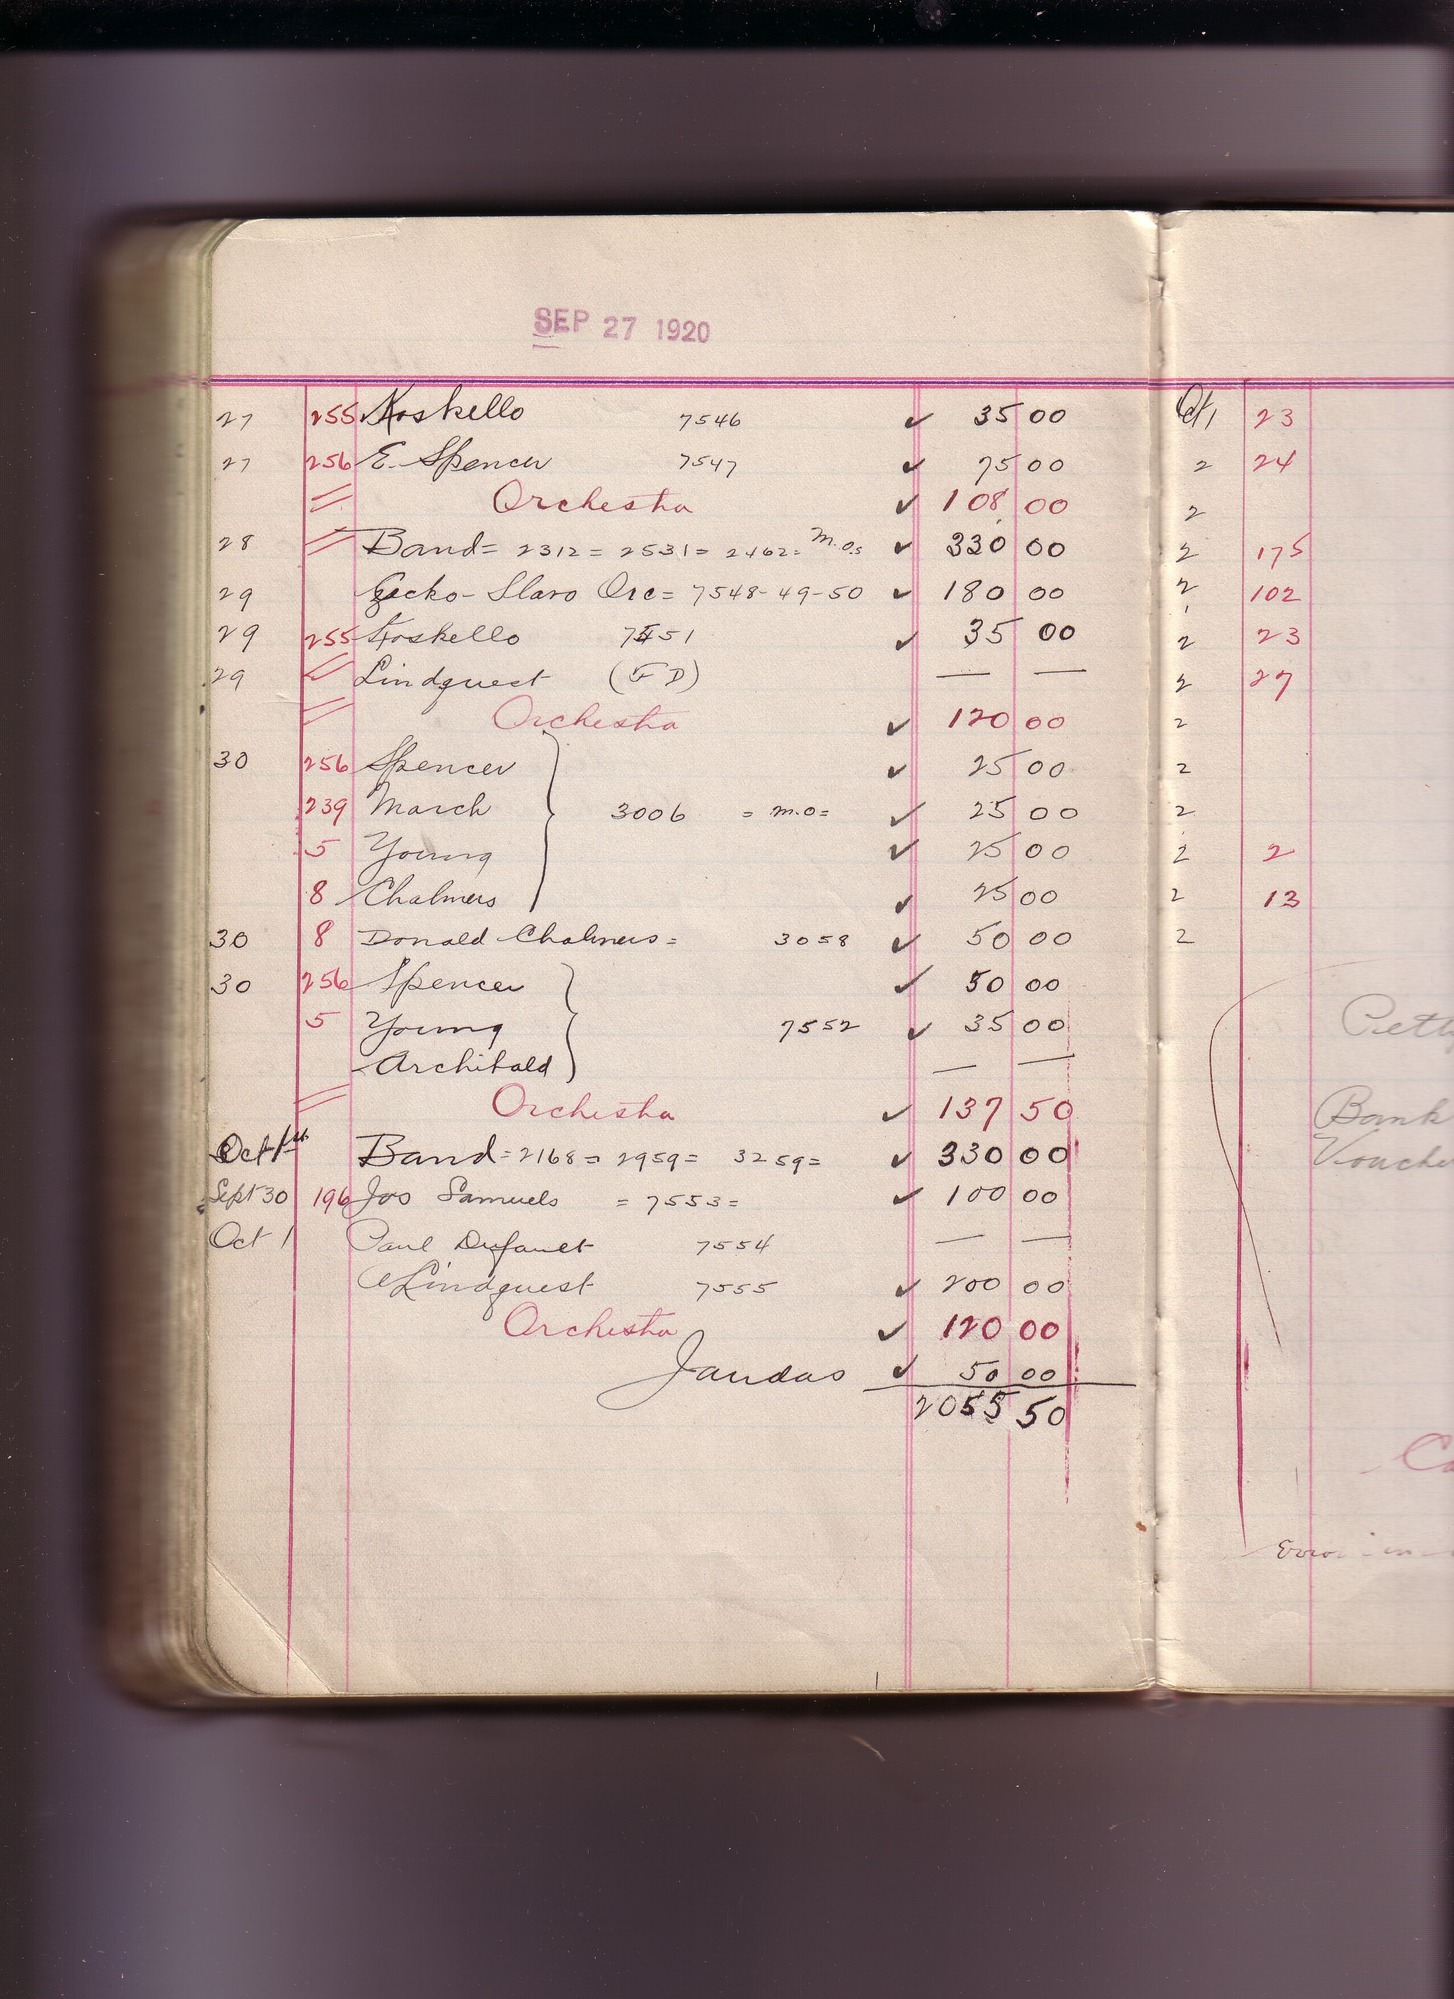 SEP 27 1920
27 255 Koskello 7546 ✓ 35 00
27 256 E. Spencer 7547 ✓ 75 00
〃 Orchestra ✓ 108 00
28 〃 Band = 2312 = 2531 = 2462 = M.Os ✓ 330 00
29 Gecko-Slavo Orc = 7548-49-50 ✓ 180 00
29 255 Koskello 7551 ✓ 35 00
29 〃 Lindquest (F D) — —
〃 Orchestra ✓ 120 00
30 256 Spencer ✓ 25 00
239 March 3006 = m.o = ✓ 25 00
5 Young ✓ 25 00
8 Chalmers ✓ 25 00
30 8 Donald Chalmers = 3058 ✓ 50 00
30 256 Spencer ✓ 50 00
5 Young 7552 ✓ 35 00
Archibald — —
〃 Orchestra ✓ 137 50
Oct 1st Band = 2168 = 2959 = 3259 = ✓ 330 00
Sept 30 196 Jos Samuels = 7553 = ✓ 100 00
Oct 1 Paul Dufault 7554 — —
Lindquest 7555 ✓ 200 00
Orchestra ✓ 120 00
Jaudas ✓ 50 00
2055 50
Oct 1 23
2 24
2
2 175
2 102
2 23
2 27
2
2
2
2 2
2 13
2
Petty
Bank
Vouche
Co
Error in